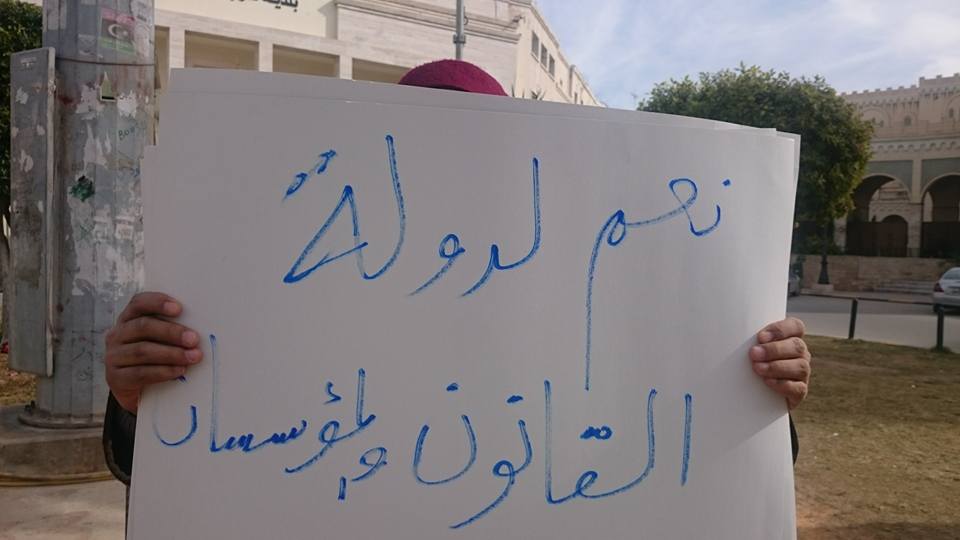 بلدية
نعم لدولة
القانون والمؤسسات